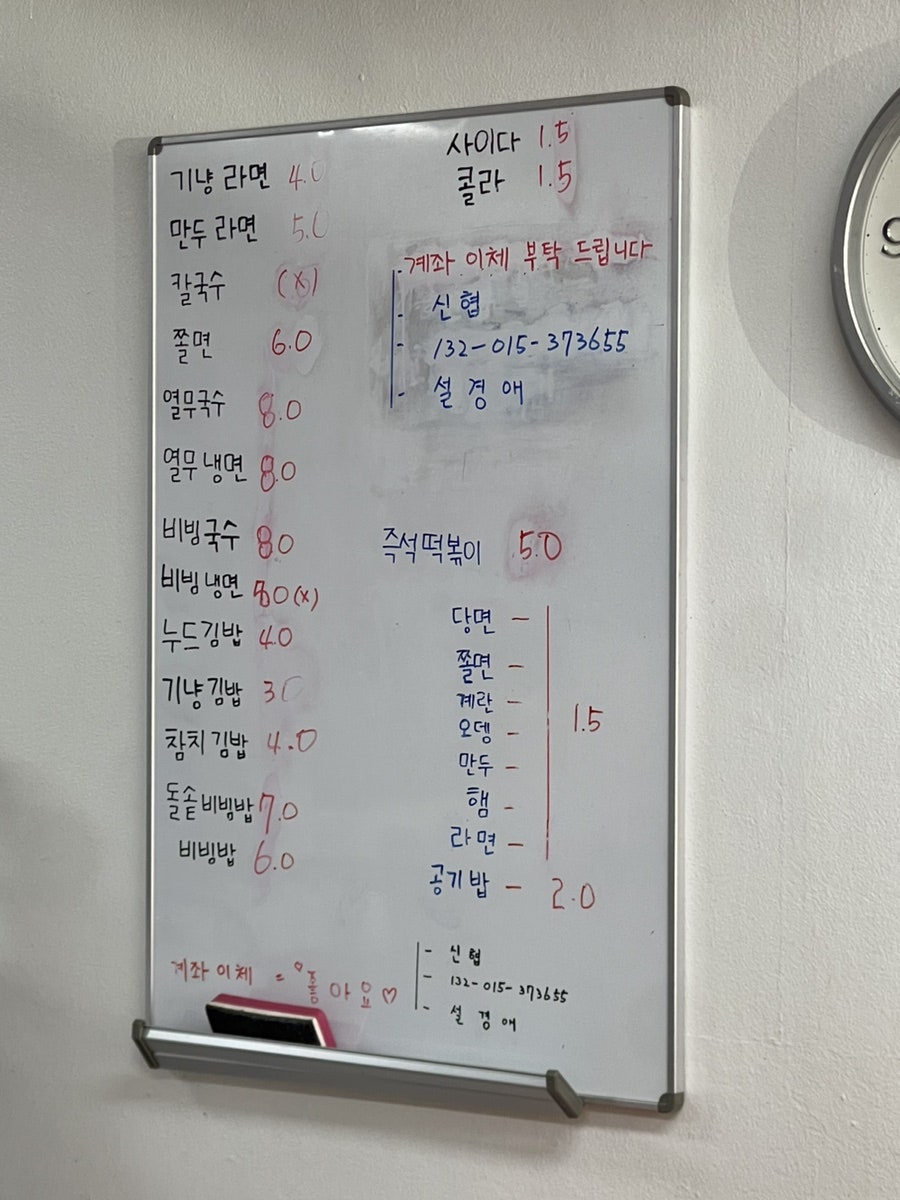 기냥 라면 4.0
만두 라면 5.0
칼국수 (x)
쫄면 6.0
열무국수 8.0
열무 냉면 8.0
비빙국수 8.0
비빙 냉면 8.0 (x)
누드김밥 4.0
기냥 김밥 3.0
참치 김밥 4.0
돌솥 비빙밥 7.0
비빙밥 6.0
사이다 1.5
콜라 1.5
계좌 이체 부탁 드립니다
- 신협
- 132-015-373655
- 설경애
즉석떡볶이 5.0
당면 -
쫄면 -
계란 -
오뎅 -
만두 -
햄 -
라면 -
1.5
공기밥 - 2.0
계좌 이체 = 좋아요♡
- 신협
- 132-015-373655
- 설경애
9